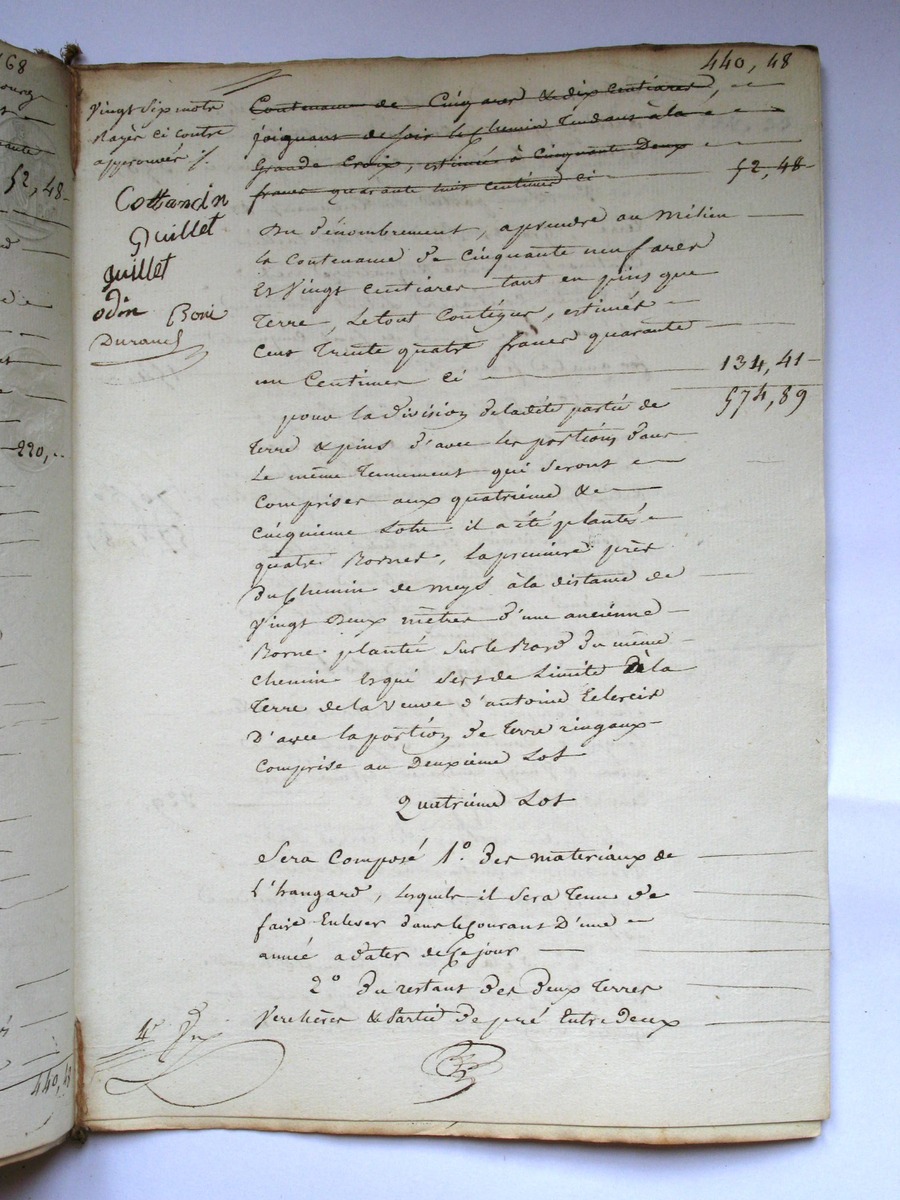 440, 48
Vingt Six mots
Rayés ci contre
approuvés
Cottancin
Guillet
Guillet
odin Boni
Durand
Contenance de Cinq ares & dix Centiares,
joignant de soir le Chemin Tendant à la
Grande Croix, estimés à Cinquante Deux
francs quarante huit Centimes ci
52, 48
Du dénombrement, aprendre au Milieu
la Contenance de Cinquante neuf ares
Et Vingt Centiares tant en pins que
Terre, Le tout Contigue, estimés
Cent Trente quatre francs quarante
un Centimes ci
134, 41
574, 89
pour la division de ladite partie de
Terre & pins d'avec les portions dans
Le même Tenement qui seront
Comprises aux quatrième &
Cinquième Lots il a été plantés
quatre Bornes, la première près
du Chemin de meys à la distance de
Vingt Deux mètres d'une ancienne
Borne plantée sur le Bord du même
Chemin Et qui sert de Limite de la
Terre de la Veuve d'antoine
D'avec la portion de Terre
Comprise au Deuxième Lot
Quatrième Lot
Sera Composé 1º. des materiaux de
L'hangard, lesquels il sera Tenu de
faire Enlever dans le Courant D'une
année a dater de ce jour
2º du restant des deux Terres
Verchères & Partie de pré Entre Deux
4e
68
52, 48
220,
440, 48